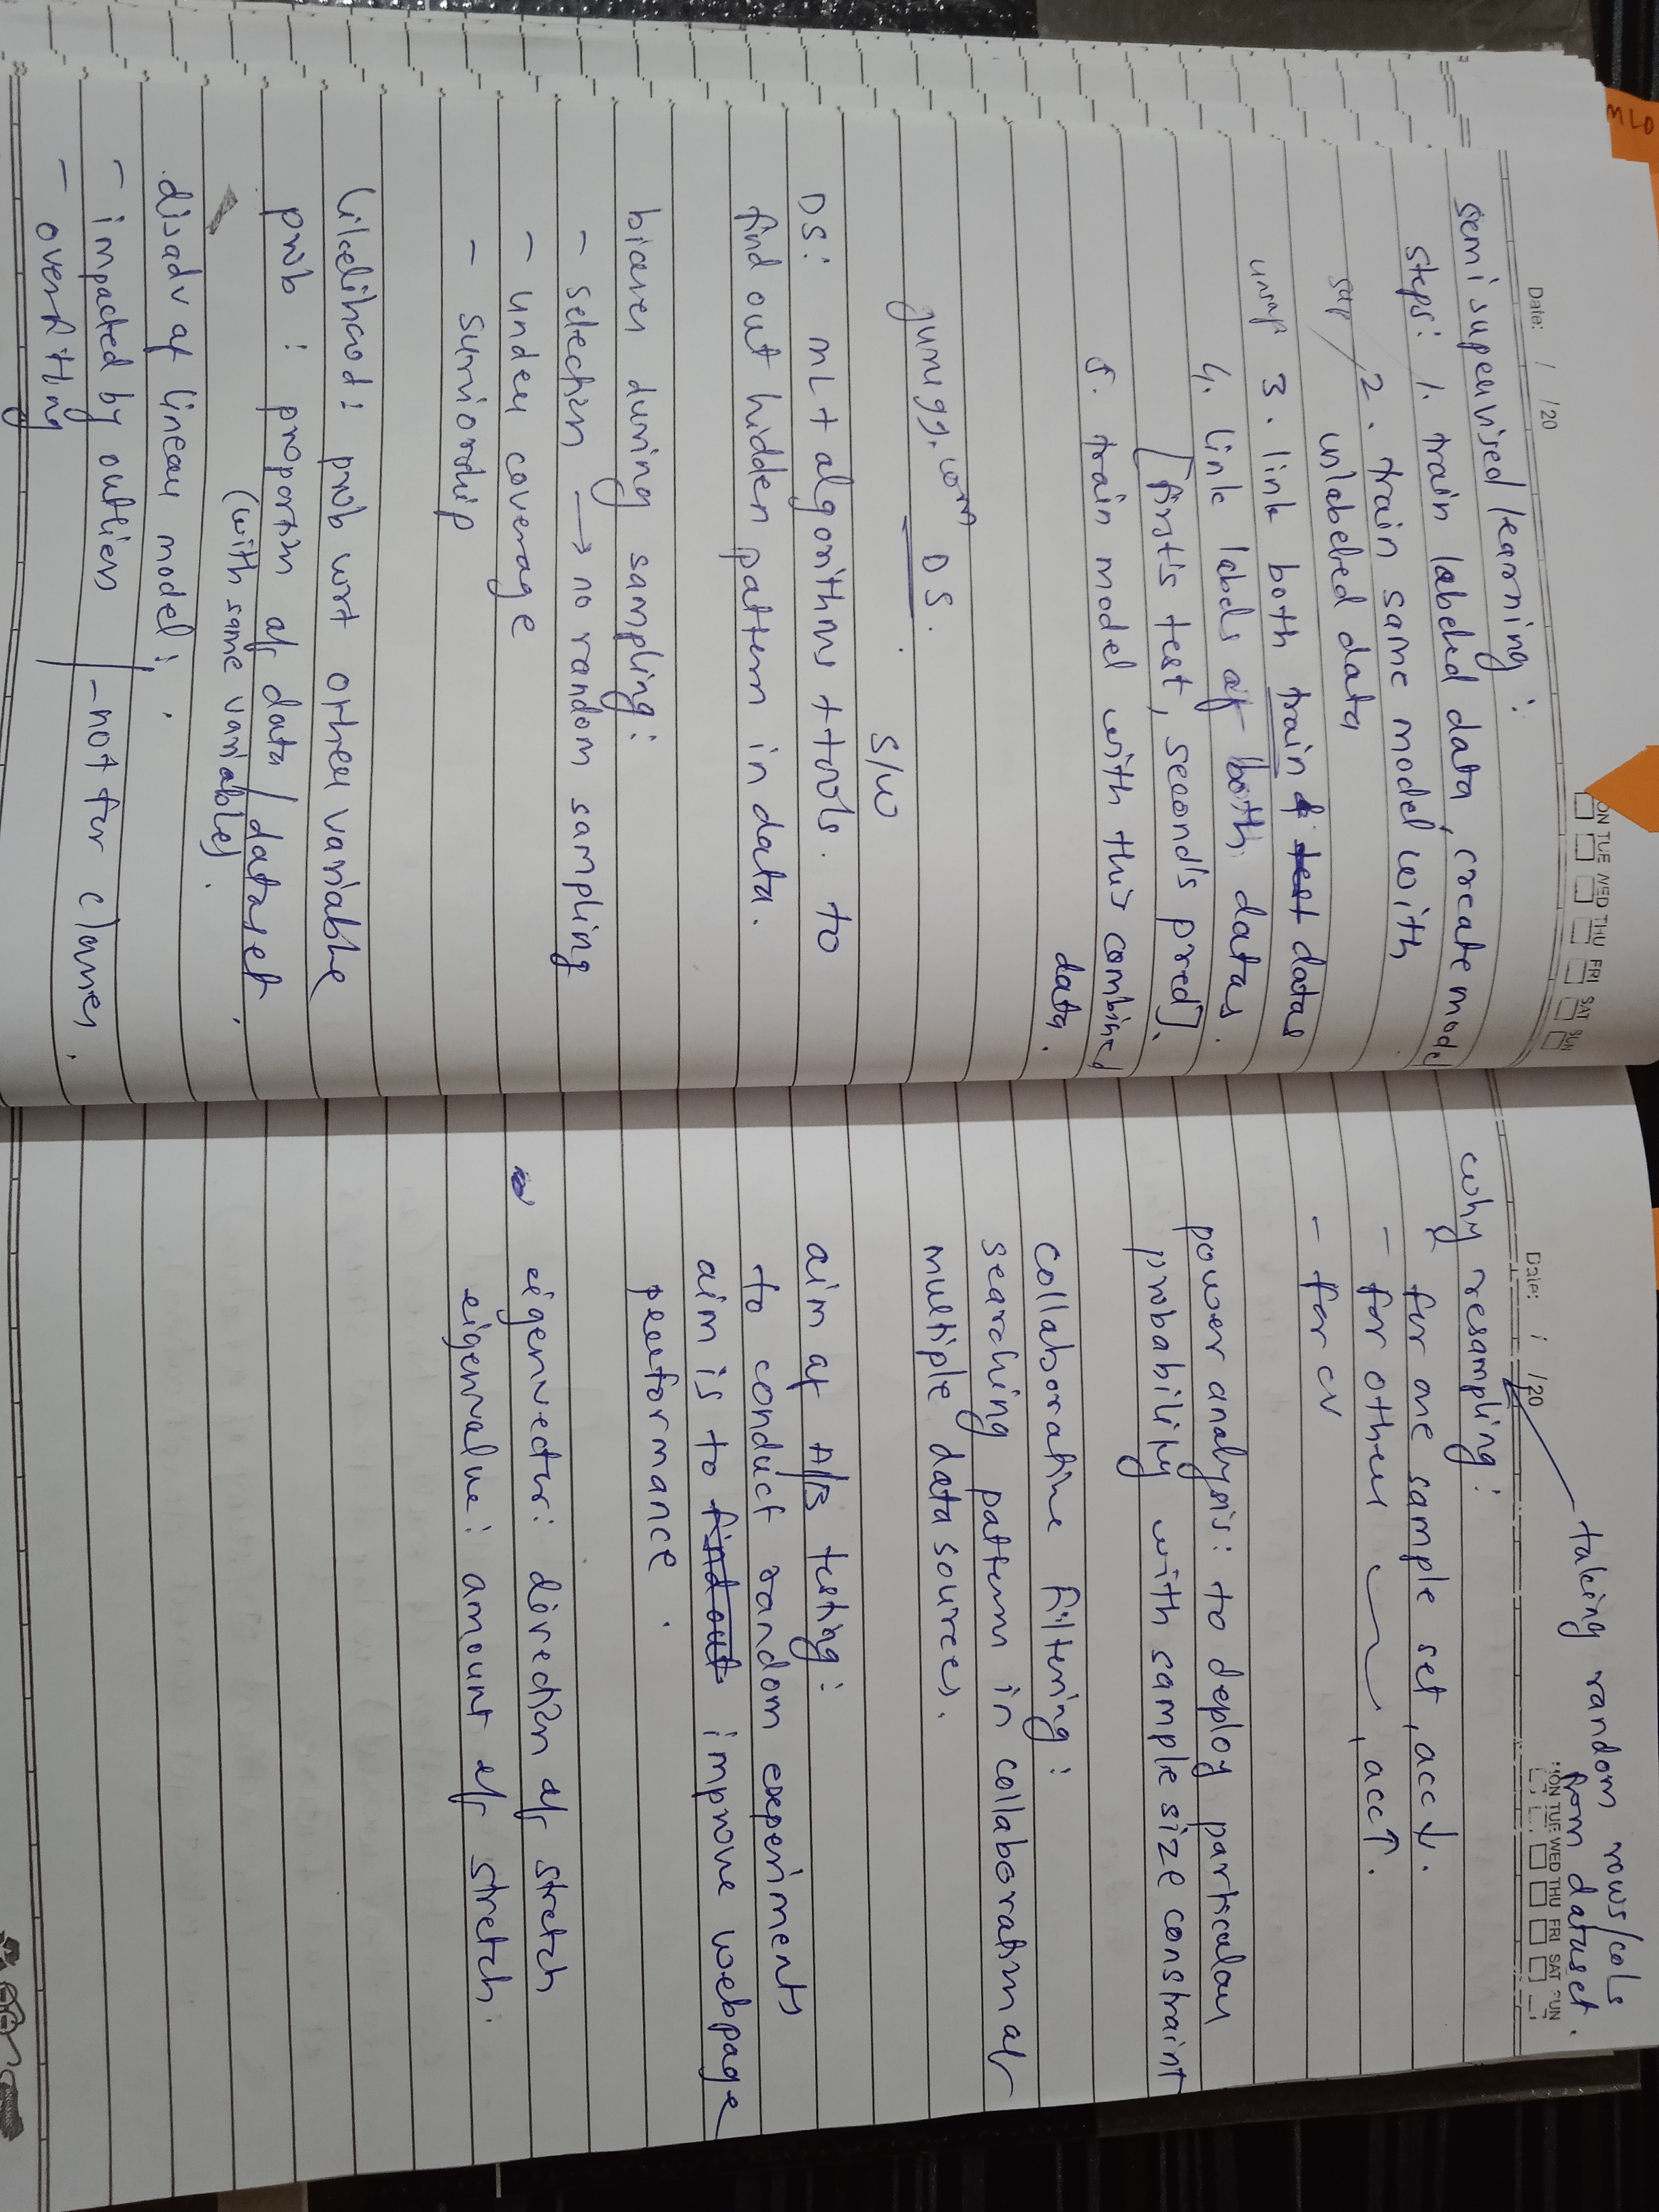 MLO
Date: / /20
ON TUE WED THU FRI SAT SUN
semisupervised learning :
steps: 1. train labeled data, create model
sup 2. train same model with
unlabeled data
unsup 3. link both train & test datas
4. link labels of both datas.
[first's test, second's pred].
5. train model with this combined
data.
DS.
S/W
DS: ML + algorithms + tools. to
find out hidden pattern in data.
biases during sampling:
- selection → no random sampling
- under coverage
- surviorship
likelihood: prob wrt other variable
prob : proportion of data / dataset
(with same variables).
disadv of linear model:
- impacted by outliers
- overfitting
- not for classes.
taking random rows/cols
from dataset.
Date: / /20
MON TUE WED THU FRI SAT SUN
why resampling:
- for one sample set, acc ↓.
- for other , acc ↑.
- for CV
power analysis: to deploy particular
probability with sample size constraint
collaborative filtering:
searching pattern in collaboration of
multiple data sources.
aim of A/B testing:
to conduct random experiments
aim is to find out improve webpage
performance.
eigenvector: direction of stretch
eigenvalue: amount of stretch.